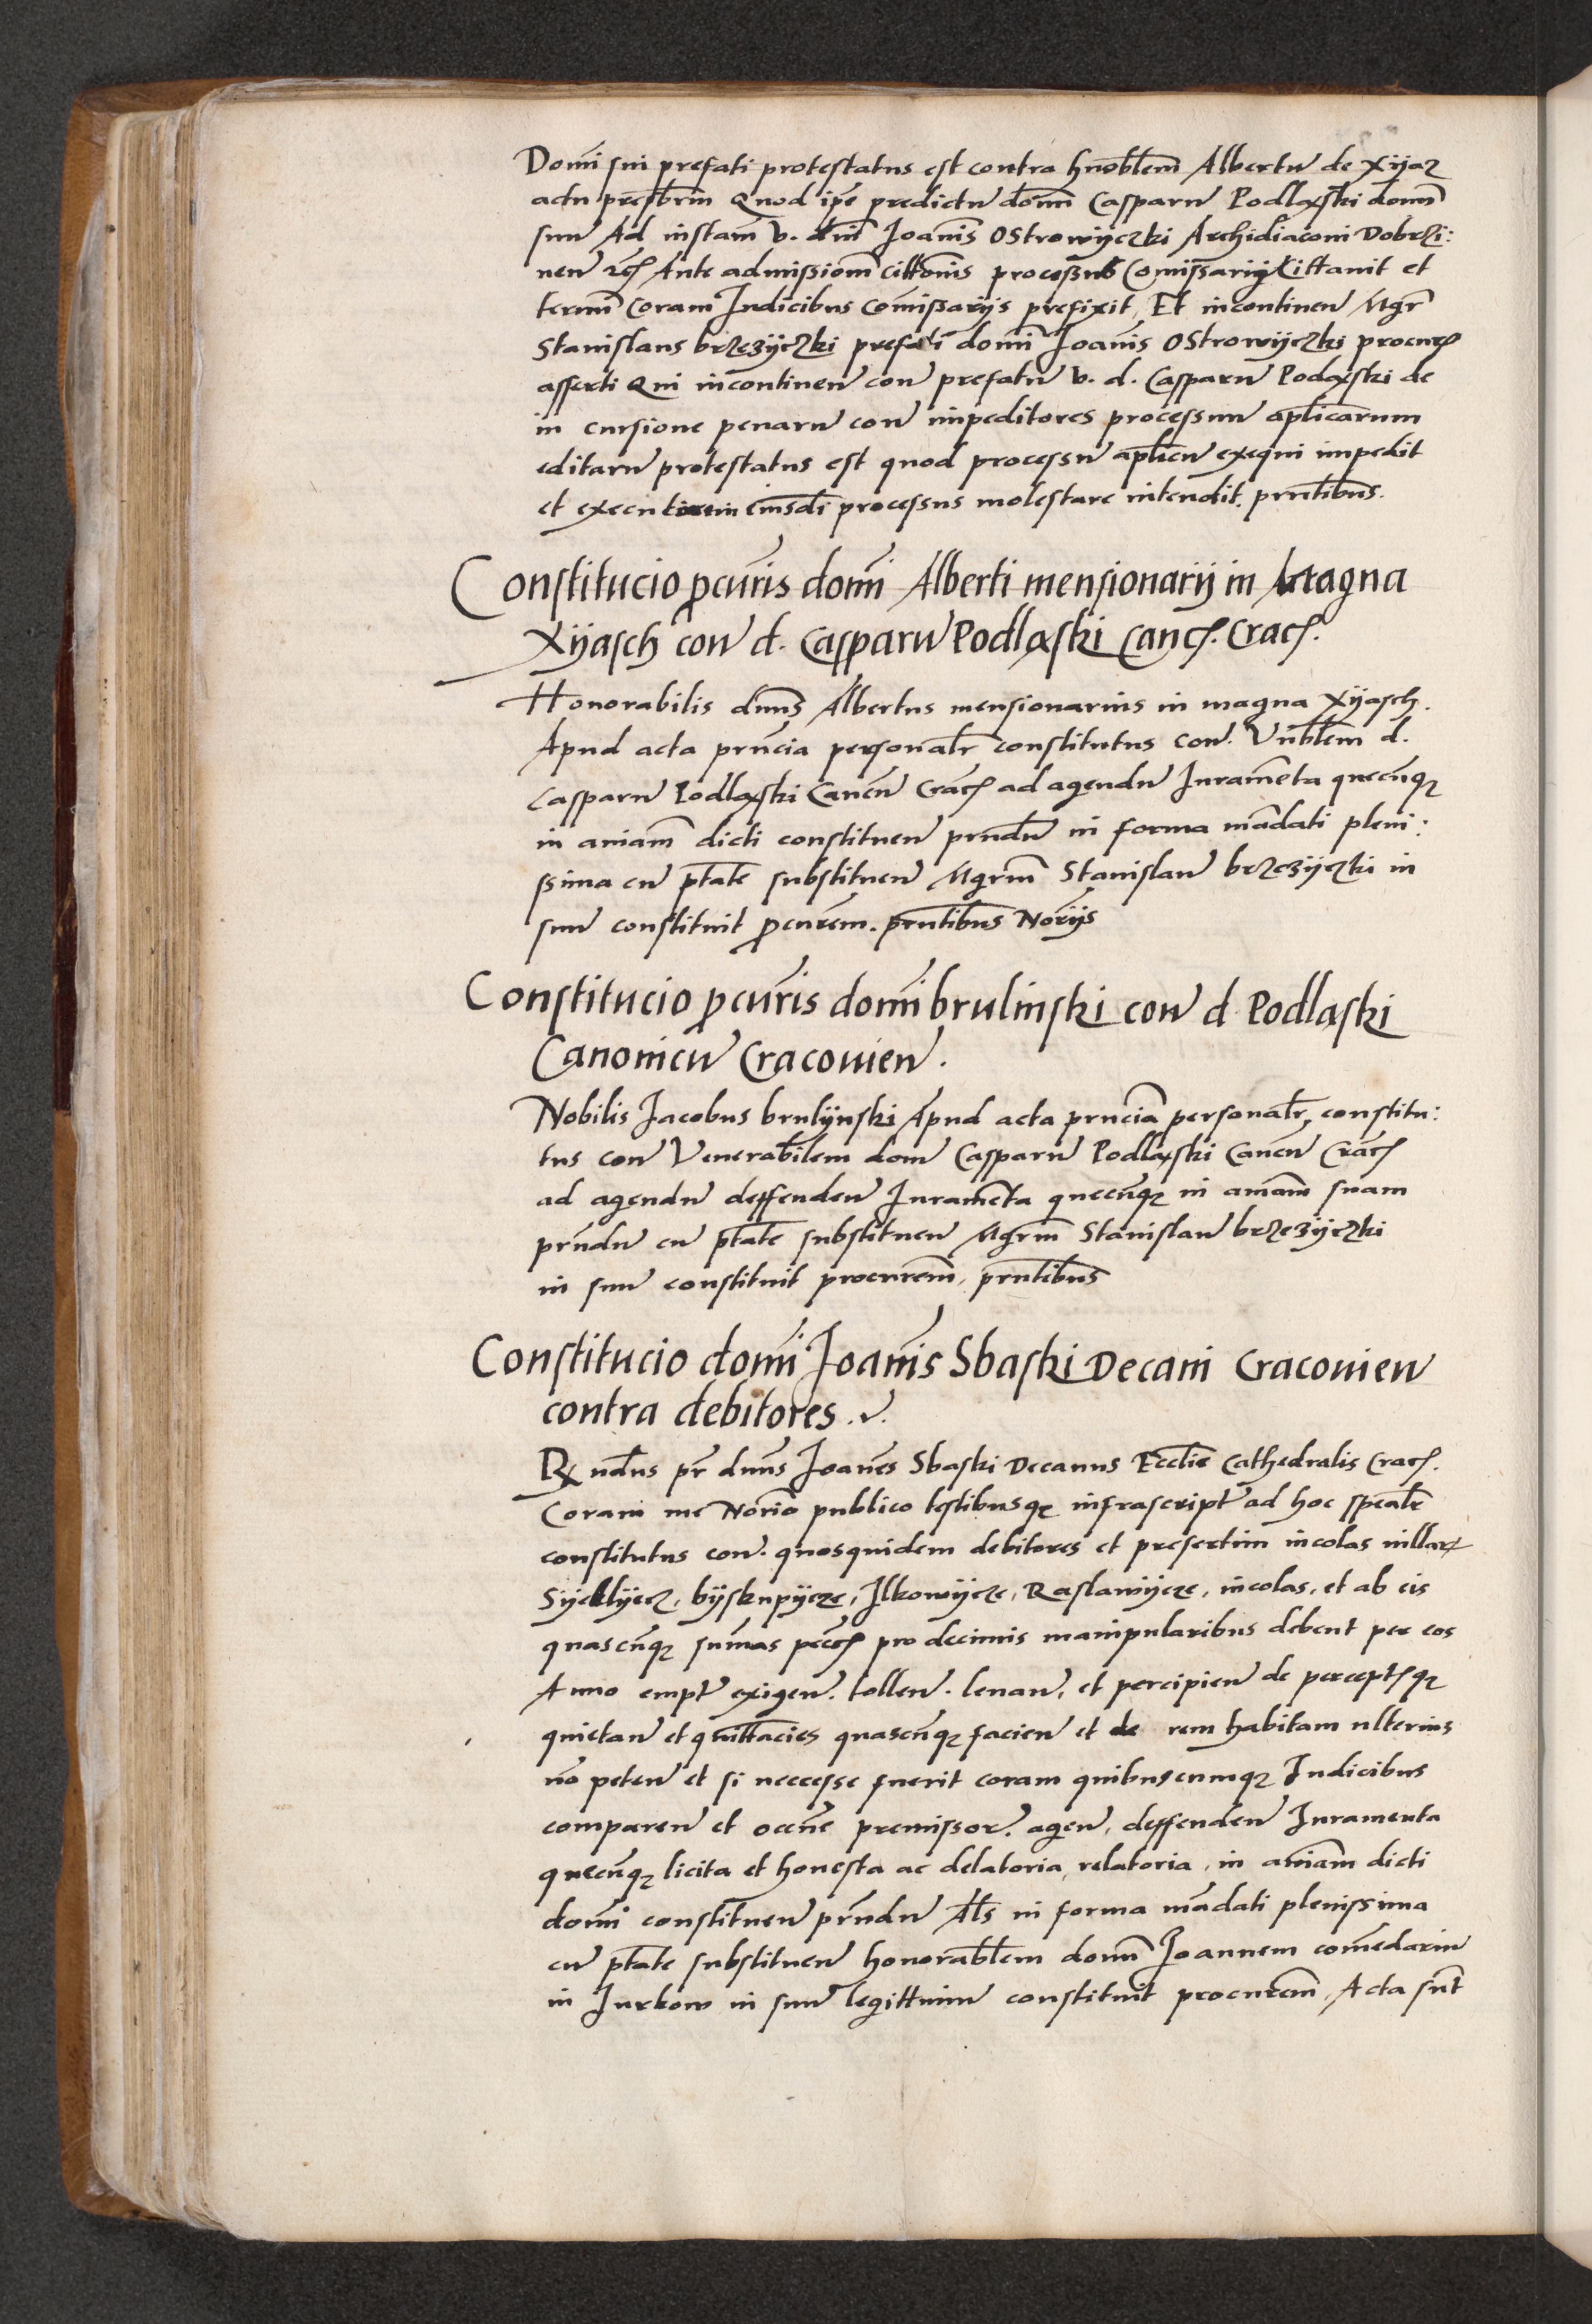 Domi sui prefati protestatus est contra hnoblem Albertu de Xijaz
actu presbrm Quod ipe predictu domi Casparu Podlaski domi
suu Ad instam v. dni Joanis Ostrowijczki Archidiaconi Dobrzi:
nen Ante admissiom cittonis processus Comissarij Cittauit et
termi Coram Judicibus Comissarijs prefixit, Et incontinen Mgr
Stanislaus brzezijczki prefati domi Joanis Ostrowijczki procur
asserti Qui incontinen con prefatu v. d. Casparu Podaski de
in cursione penaru con impeditores processuu aplicarum
editaru protestatus est quod processu aplicu exequi impedit
et executorem eiusdi processus molestare intendit. prntibus.
Constitucio pcuris domi Alberti mensionarij in Magna
Xijasch con d. Casparu Podlaski Canc. Crac.
Honorabilis duns Albertus mensionarius in magna Xijasch.
Apud acta prncia personalr constitutus con. Vnblem d.
Casparu Podlaski Canen Crac ad agendu Juramenta quecuq
in aniam dicti constituen prndu in forma madati pleni:
ssima cu ptate substituen Mgrm Stanislau brzezijczki in
suu constituit pcurem. prntibus Norijs
Constitucio pcuris domi brulinski con d Podlaski
Canonicu Cracouien.
Nobilis Jacobus brulijnski Apud acta prncia personalr constitu:
tus con Venerabilem dom Casparu Podlaski Canen Crac
ad agendu deffenden Juramenta quecuq in aniam suam
prndu cu ptate substituen Mgrm Stanislau brzezijczki
in suu constituit procurem, prntibus
Constitucio domi Joanis Sbaski Decani Cracouien
contra debitores .v.
Rndus pr duns Joanes Sbaski Decanus Ecclie Cathedralis Crac.
Coram me Norio publico testibusq infrascript ad hoc spealr
constitutus con. quosquidem debitores et presertim incolas uillar
Sijcklijcz, bijskupijcze, Jlkowijcze, Raslawijcze, incolas, et ab eis
quascuq sumas pecc pro decimis manipularibus debent per eos
Anno empt exigen. tollen. leuan, et percipien de perceptq
quietan et quittacies quascuq facien et de rem habitam ulterius
no peten et si neccesse fuerit coram quibuscumq Judicibus
comparen et occne premissor. agen, deffenden Juramenta
quecuq licita et honesta ac delatoria, relatoria, in aniam dicti
domi constituen prndu Als in forma madati plenissima
cu ptate substituen honorablem domi Joannem comedariu
in Jurkow in suu legittimu constituit procurem, Acta sut